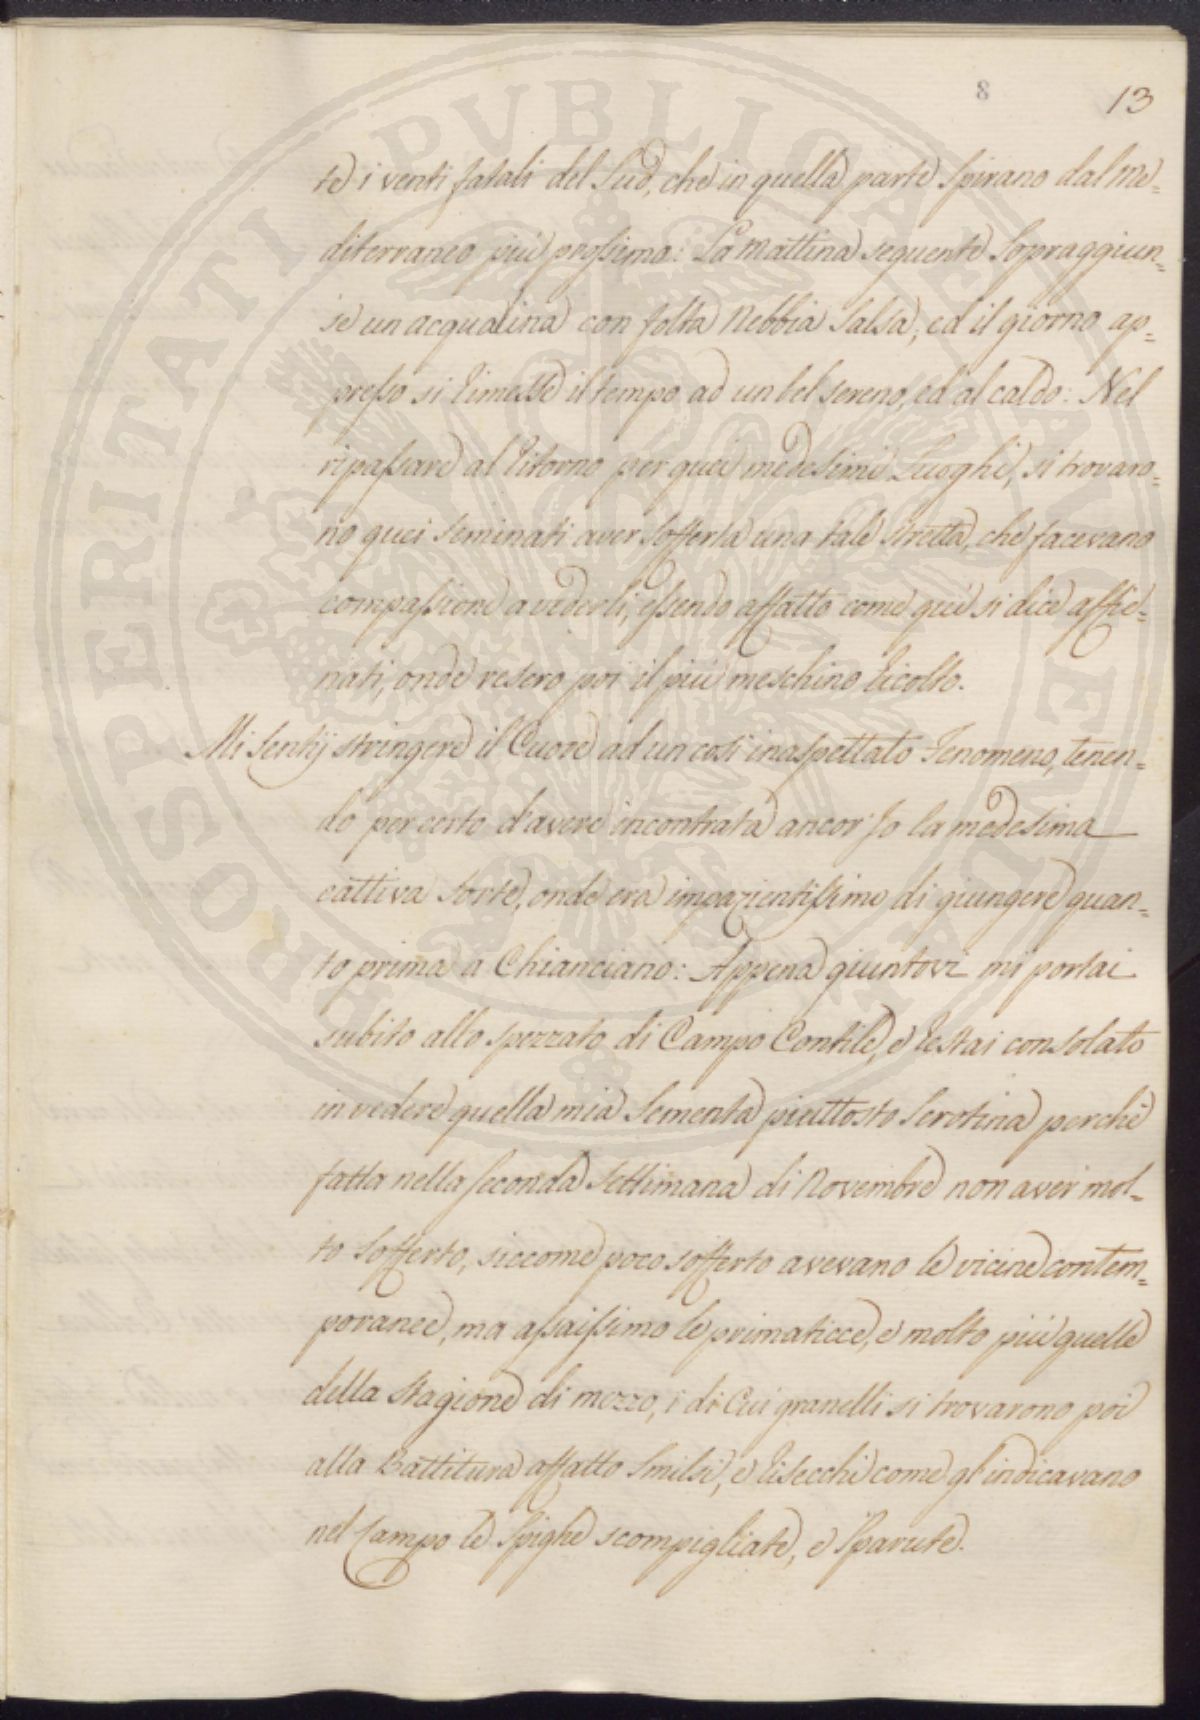 8
13
te i venti fatali del Sud, che in quella parte spirano dal Me=
diterraneo più prossimo: La mattina seguente sopraggiun=
se un acqualina con folta Nebbia salsa, ed il giorno ap=
presso si rimesse il tempo ad un bel sereno, ed al caldo: Nel
ripassare al ritorno per quei medesimi Luoghi, si trovaro=
no quei seminati aver sofferta una tale stretta, che facevano
compassione a vederli, essendo affatto come qui si dice affie=
nati, onde resero poi il più meschino ricolto.
Mi sentij stringere il Cuore ad un così inaspettato Fenomeno, tenen=
do per certo d'avere incontrata ancor Jo la medesima
cattiva sorte, onde era impazientissimo di giungere quan=
to prima a Chianciano: Appena giuntovi mi portai
subito allo spezzato di Campo Contile, e restai consolato
in vedere quella mia sementa piuttosto serotina perchè
fatta nella seconda settimana di Novembre non aver mol=
to sofferto, siccome poco sofferto avevano le vicine contem=
poranee, ma assaissimo le primaticce, e molto più quelle
della stagione di mezzo, i di cui granelli si trovarono poi
alla Battitura affatto smilsi, e risecchi come gl'indicavano
nel Campo le spighe scompigliate, e sparute.
PROSPERITATI PVBLICAE AVGENDAE